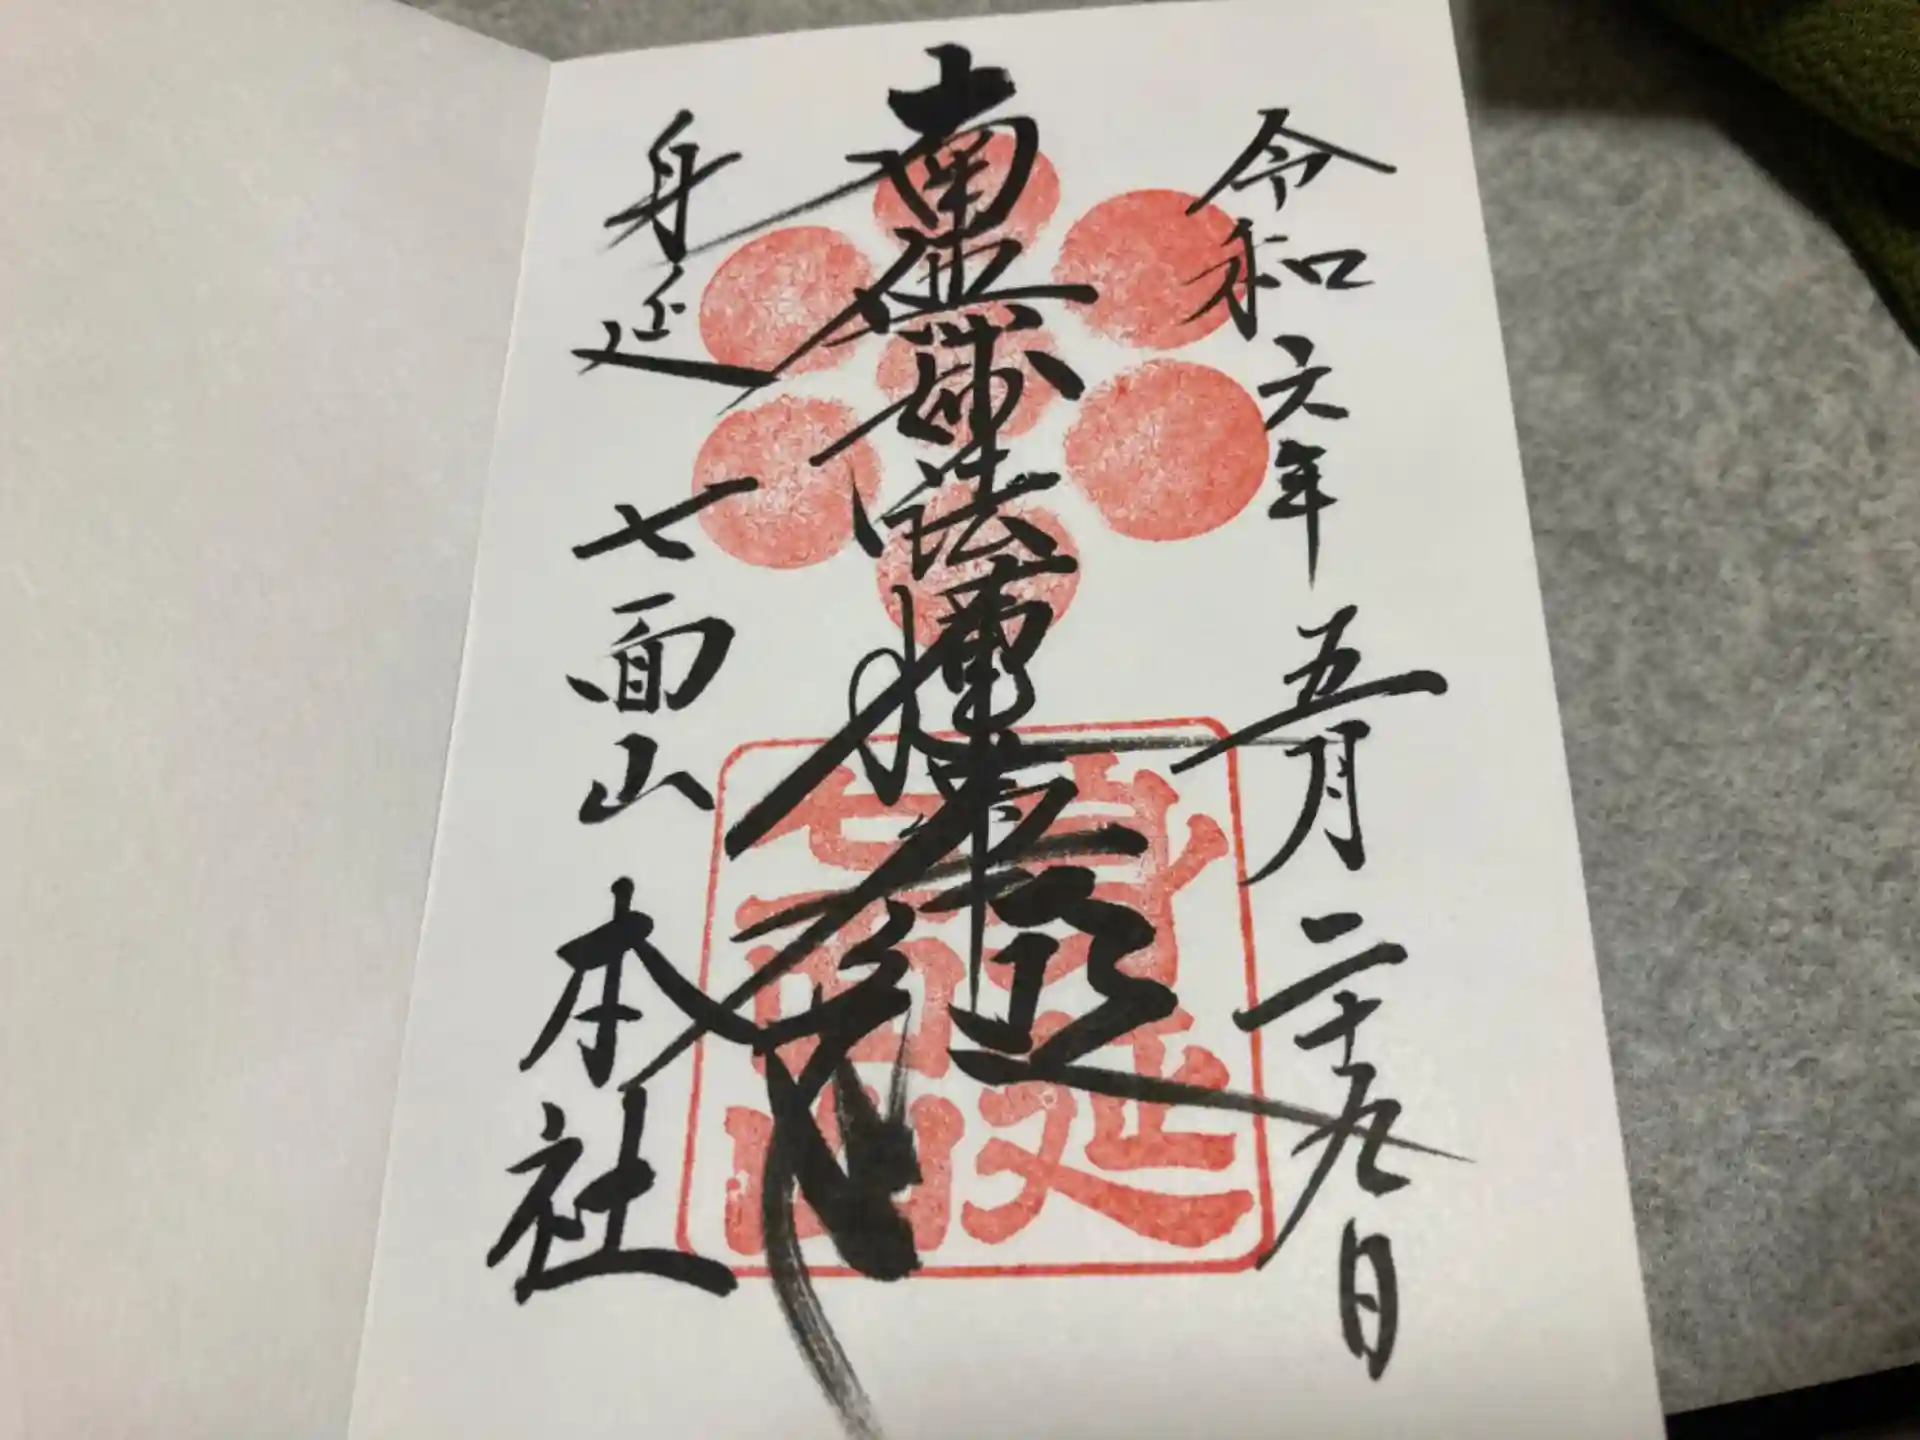 令和六年五月二十九日
南無妙法蓮華経
身延七面山本社
身延
七面山